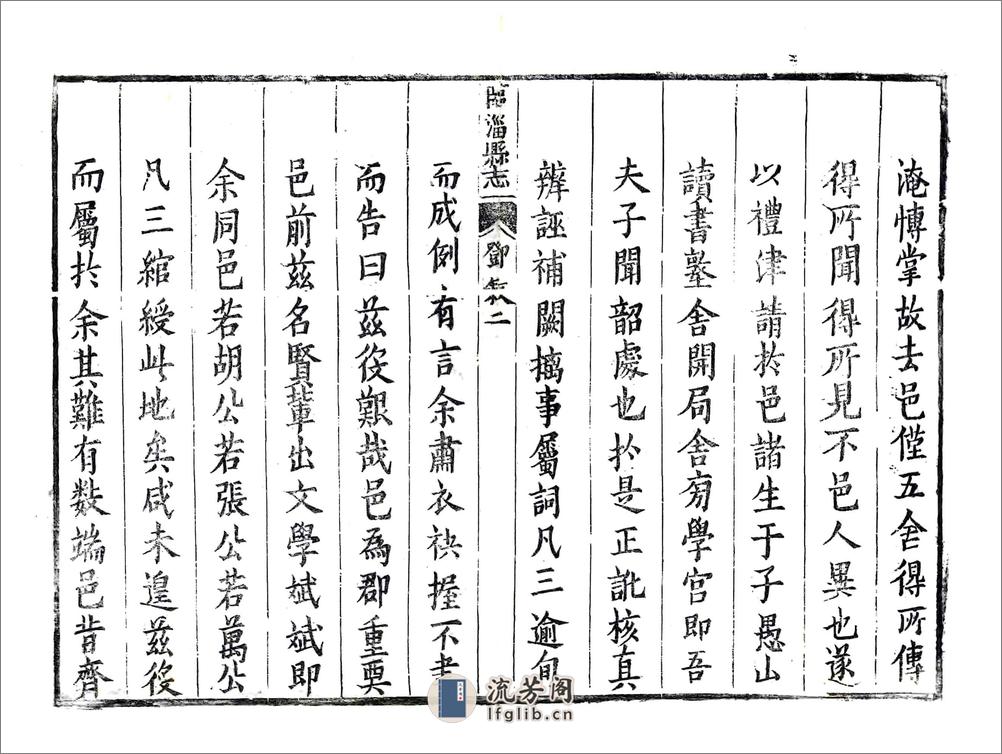 淹博掌故去邑僅五舍得所傳
得所聞得所見不邑人異也遂
以禮津請於邑諸生于子愚山
讀書塾舍開局舍旁學宫即吾
夫子聞韶處也於是正訛核真
辨誣補闕摛事屬詞凡三逾旬
臨淄縣志
鄧叙二
而成例有言余肅衣袂握不聿
而告曰兹役艱哉邑為郡重奥
邑前兹名賢輩出文學斌斌即
余同邑若胡公若張公若萬公
凡三綰綬此地矣咸未遑兹役
而屬於余其難有数端邑昔齊
流芳阁
lfglib.cn